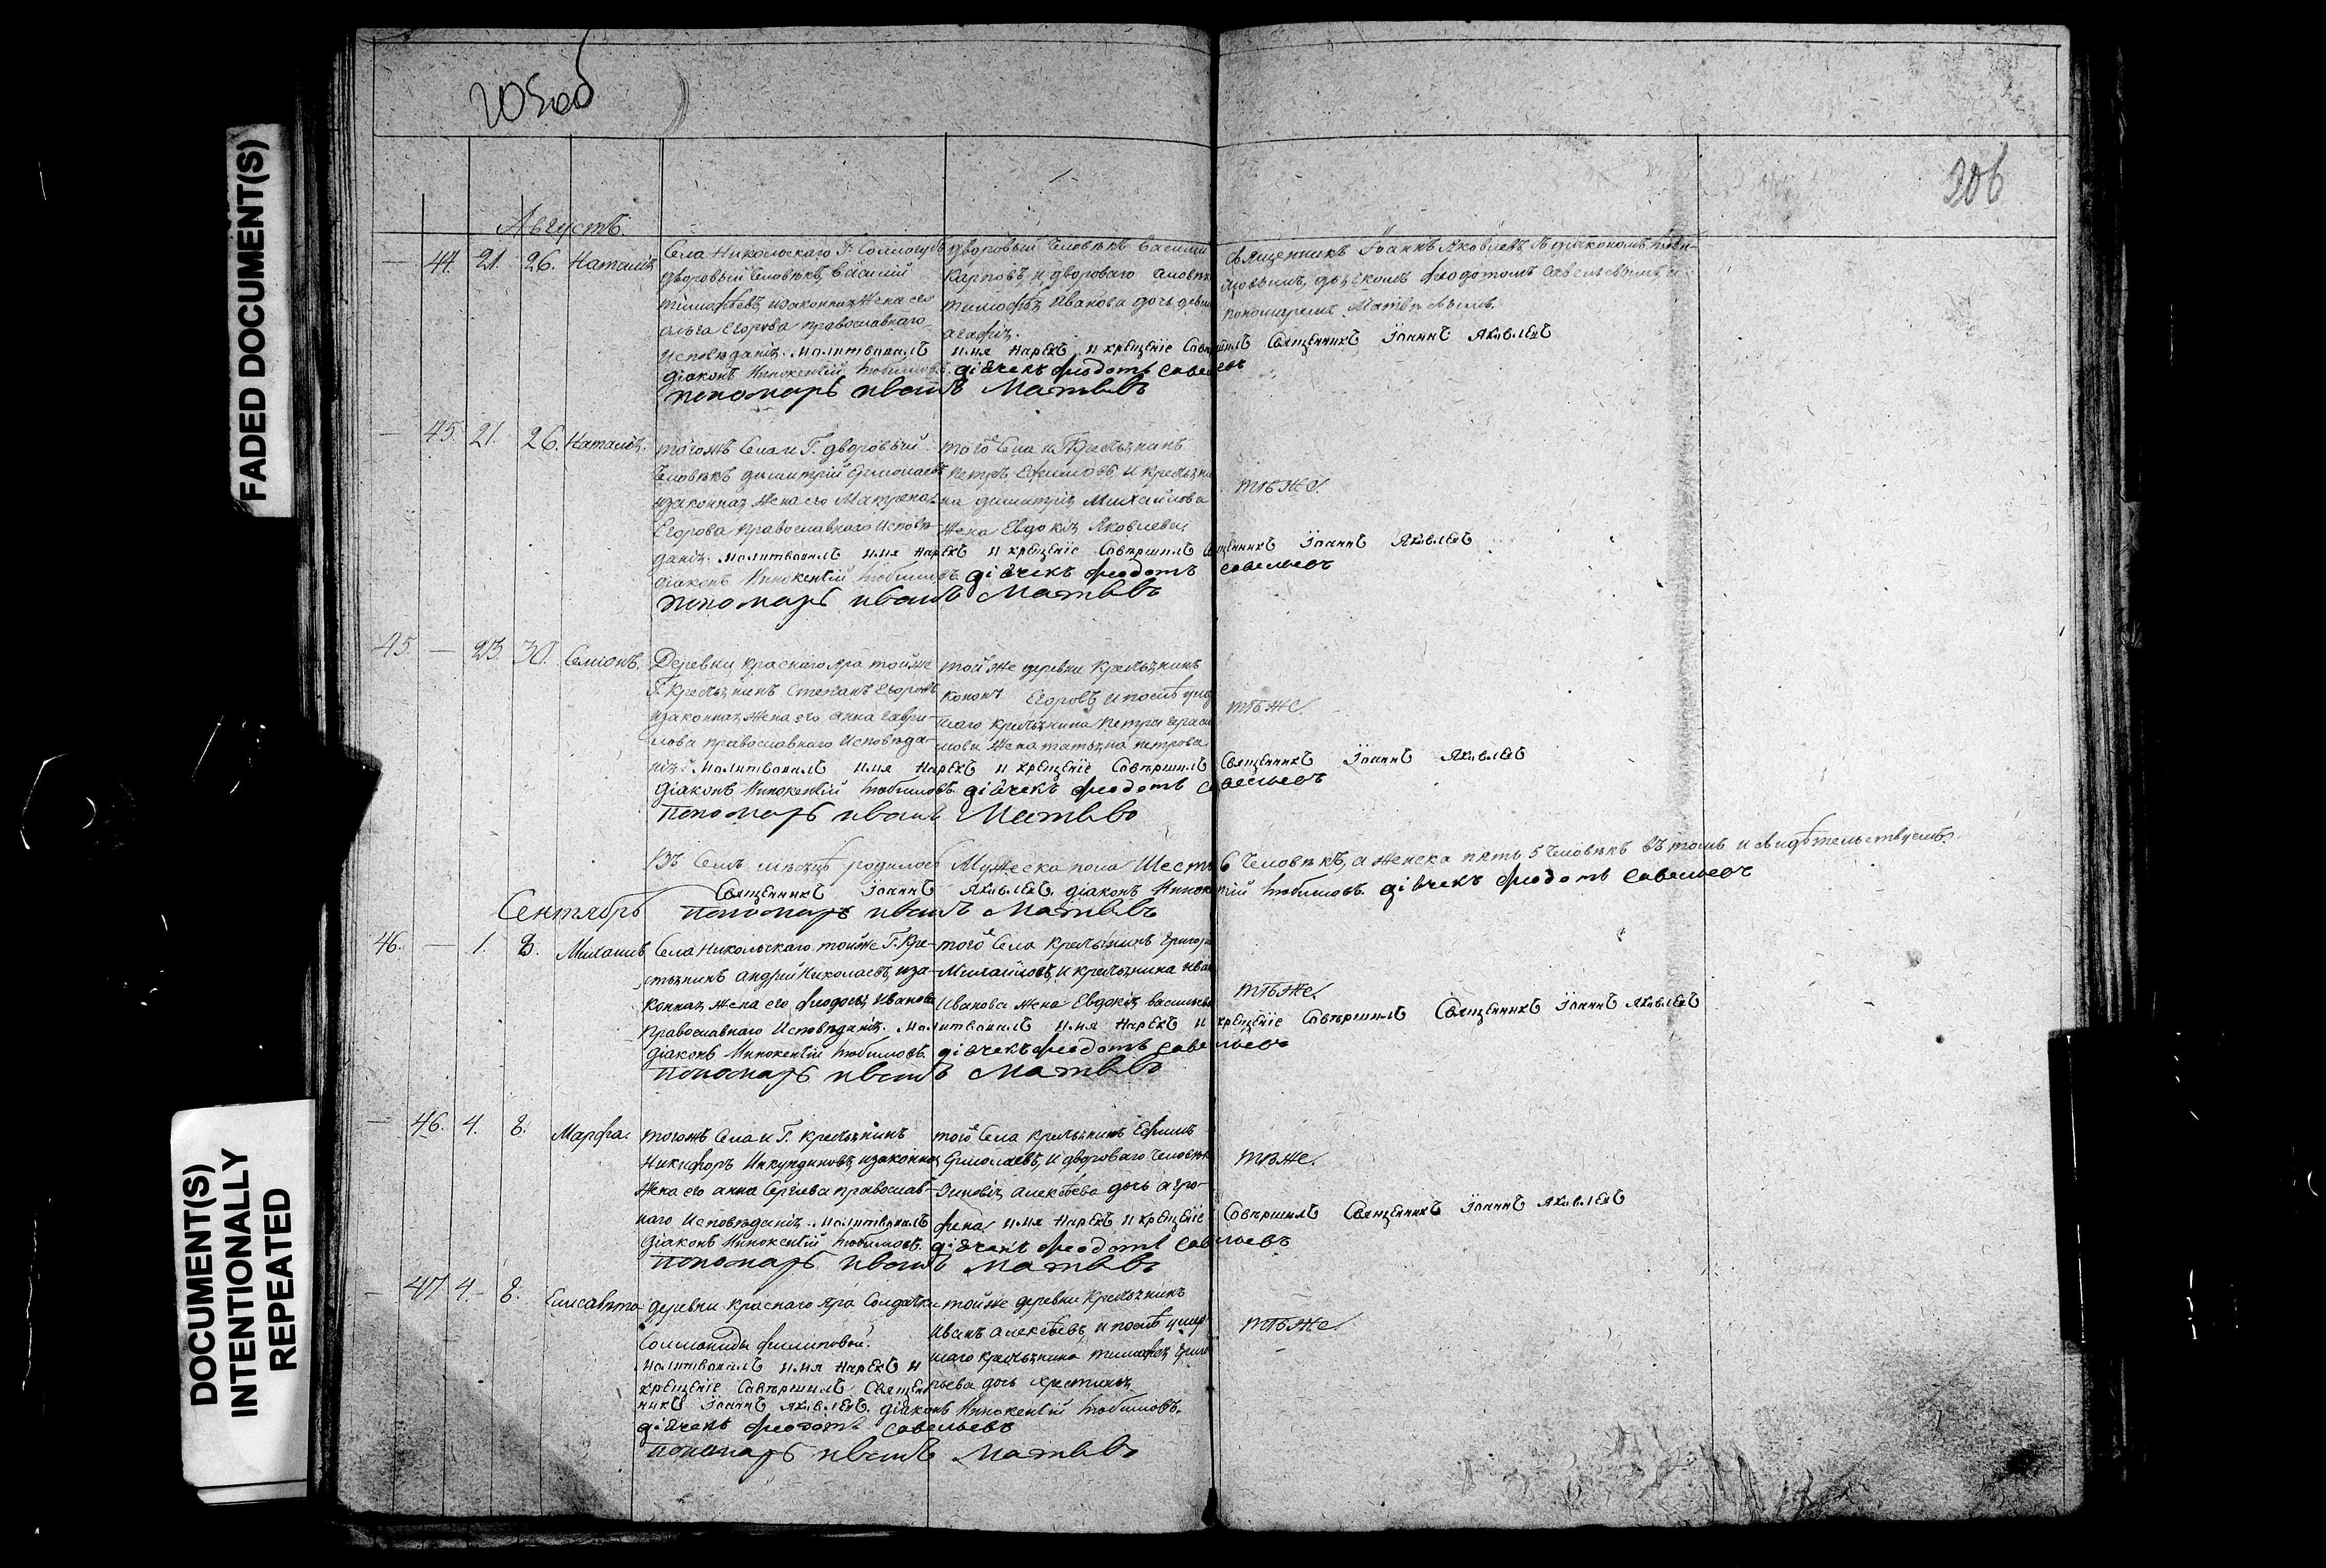 205об
206
FADED DOCUMENT(S)
DOCUMENT(S)
INTENTIONALLY
REPEATED
Августъ.
— 44. 21. 26. Наталія
Села Никольскаго Г:
дворовый человѣкъ василій
тимофѣевъ, изаконная жена его
ольга Егорова православнаго
Исповѣданія. Молитвовалъ имя нарекъ и крещеніе Совершилъ Священникъ Іоаннъ Яковлевъ
діаконъ Иннокентій Любимовъ. дічекъ феодотъ савельевъ
пономарь иванъ Матвѣвъ
дворовый человѣкъ василій
Карповъ, и двороваго человѣка
тимофѣя Иванова дочь девица
агафія.
священникъ Іоаннъ Яковлевъ съ діакономъ Люби-
мовымъ, дьячкомъ феодотомъ савельевымъ и
пономаремъ Матвѣевымъ.
— 45. 21. 26. Наталія.
тогожъ Села и Г. дворовый
человѣкъ димитрій Ермолаевъ
изаконная жена его Матрена
Егорова православнаго Исповѣ-
данія. Молитвовалъ имя нарекъ и крещеніе Совершилъ Священникъ Іоаннъ Яковлевъ
діаконъ Иннокентій Любимовъ. дічекъ феодотъ савельевъ
пономарь иванъ Матвѣвъ
того Села и Г. Крестьянинъ
петръ Ефимовъ, и крестьяни-
на димитрія Михайлова
жена Евдокія Яковлева
тѣже.
45. — 23. 30. Симіонъ.
Деревни краснаго яра тойже
Г. Крестьянинъ Степанъ Егоровъ
изаконная жена его анна гаври-
лова православнаго Исповѣда-
нія. Молитвовалъ имя нарекъ и крещеніе Совершилъ Священникъ Іоаннъ Яковлевъ
діаконъ Иннокентій Любимовъ. дічекъ феодотъ савельевъ
пономарь иванъ Матвѣвъ
той же деревни Крестьянинъ
кононъ Егоровъ, и послѣ умер-
шаго крестьянина петра гераси-
мова жена татьяна петрова
тѣже.
Въ Семъ мѣсяцѣ родилось Мужеска пола Шесть 6 Человѣкъ, а женска пять 5 Человѣкъ въ томъ и свидѣтельствуемъ.
Священникъ Іоаннъ Яковлевъ. діаконъ Иннокентій Любимовъ. дічекъ феодотъ савельевъ
пономарь иванъ Матвѣвъ
Сентябрь
46. — 1. 8. Михаилъ
Села Никольскаго, тойже Г. Кре-
стьянинъ андрей Николаевъ, иза-
конная жена его феодосья Иванова
Православнаго Исповѣданія. Молитвовалъ имя нарекъ и крещеніе Совершилъ Священникъ Іоаннъ Яковлевъ
діаконъ Иннокентій Любимовъ. дічекъ феодотъ савельевъ
пономарь иванъ Матвѣвъ
того Села крестьянинъ григорій
Михайловъ, и крестьянина Ивана
Иванова жена Евдокія васильева
тѣже.
— 46. 4. 8. Марфа.
тогожъ Села и Г. крестьянинъ
Никифоръ Инкундиновъ, изаконная
жена его анна Сергіева православ-
наго Исповѣданія. Молитвовалъ имя нарекъ и крещеніе Совершилъ Священникъ Іоаннъ Яковлевъ
діаконъ Иннокентій Любимовъ. дічекъ феодотъ савельевъ
пономарь иванъ Матвѣвъ
того Села крестьянинъ Ефимъ
Ермолаевъ, и двороваго человѣка
Зиновія алексѣева дочь агро-
фена
тѣже.
— 47. 4. 8. Елисавета
деревни краснаго яра Солдатки
Соломониды филиповой.
Молитвовалъ имя нарекъ и
крещеніе Совершилъ Священ-
никъ Іоаннъ Яковлевъ. діаконъ Иннокентій Любимовъ.
дічекъ феодотъ савельевъ
пономарь иванъ Матвѣвъ
тойже деревни Крестьянинъ
Иванъ алексѣевъ, и послѣ умер-
шаго крестьянина тимофея григо-
рьева дочь христинья
тѣже.